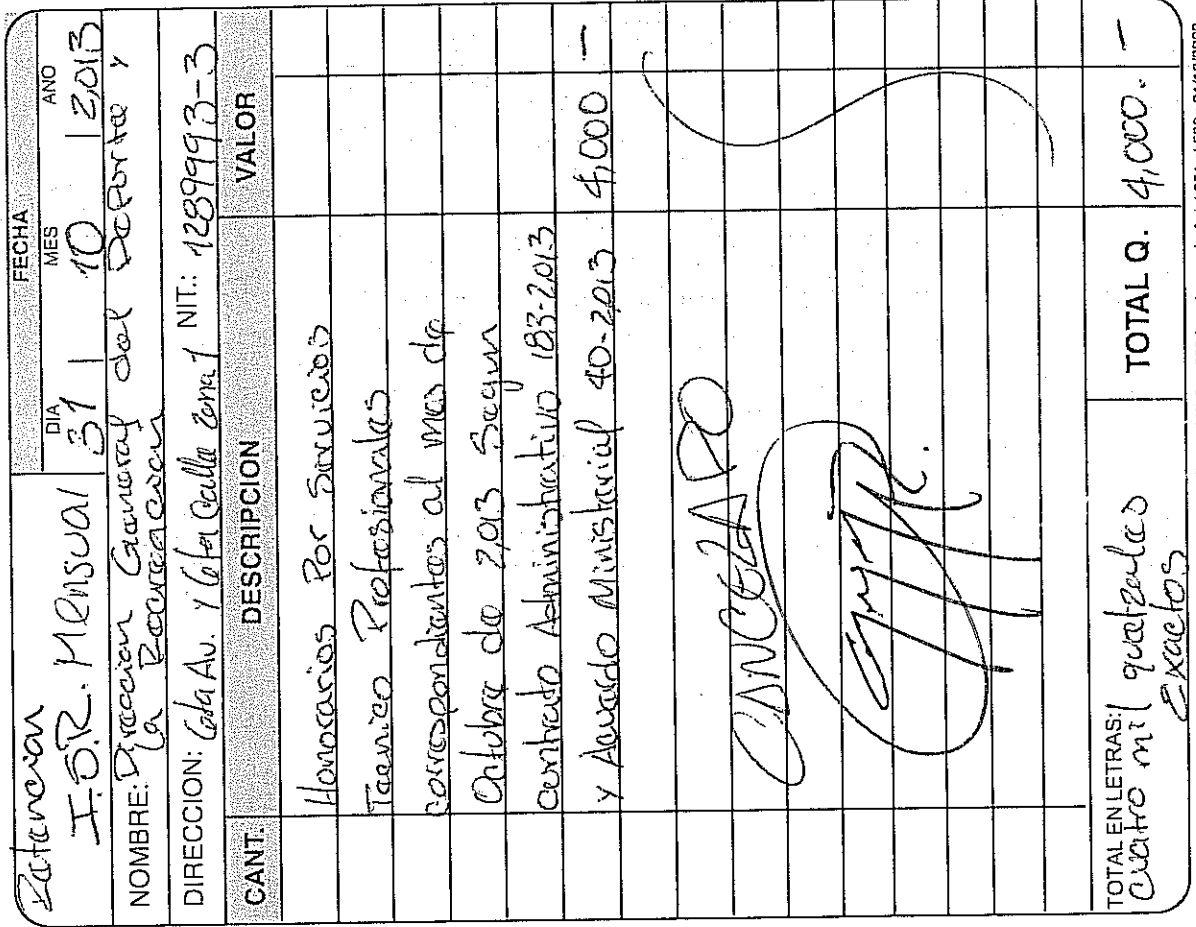 Retencion
I.S.R. Mensual
FECHA
DIA MES AÑO
31 10 2,013
NOMBRE: Direccion General del Deporte y
la Recreacion
DIRECCION: 6ta Av. y 6ta Calle zona 1 NIT.: 1289993-3
CANT. DESCRIPCION VALOR
Honorarios Por Servicios
Tecnico Profesionales
correspondientes al mes de
Octubre de 2,013 Segun
contrato Administrativo 183-2,013
y Acuerdo Ministerial 40-2,013 4,000 —
CANCELADO
TOTAL EN LETRAS:
Cuatro mil quetzales
Exactos
TOTAL Q. 4,000.-